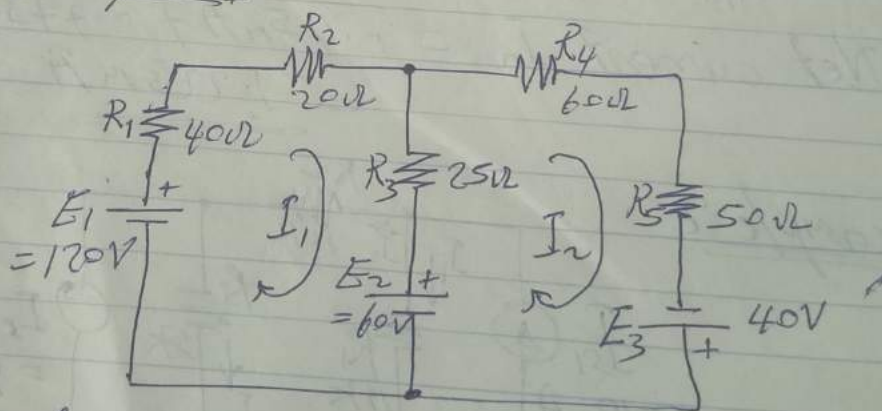 R2
20Ω
R4
60Ω
R1
40Ω
R3
25Ω
R5
50Ω
+
E1
=120V
I1
I2
E2
+
=60V
E3
40V
+